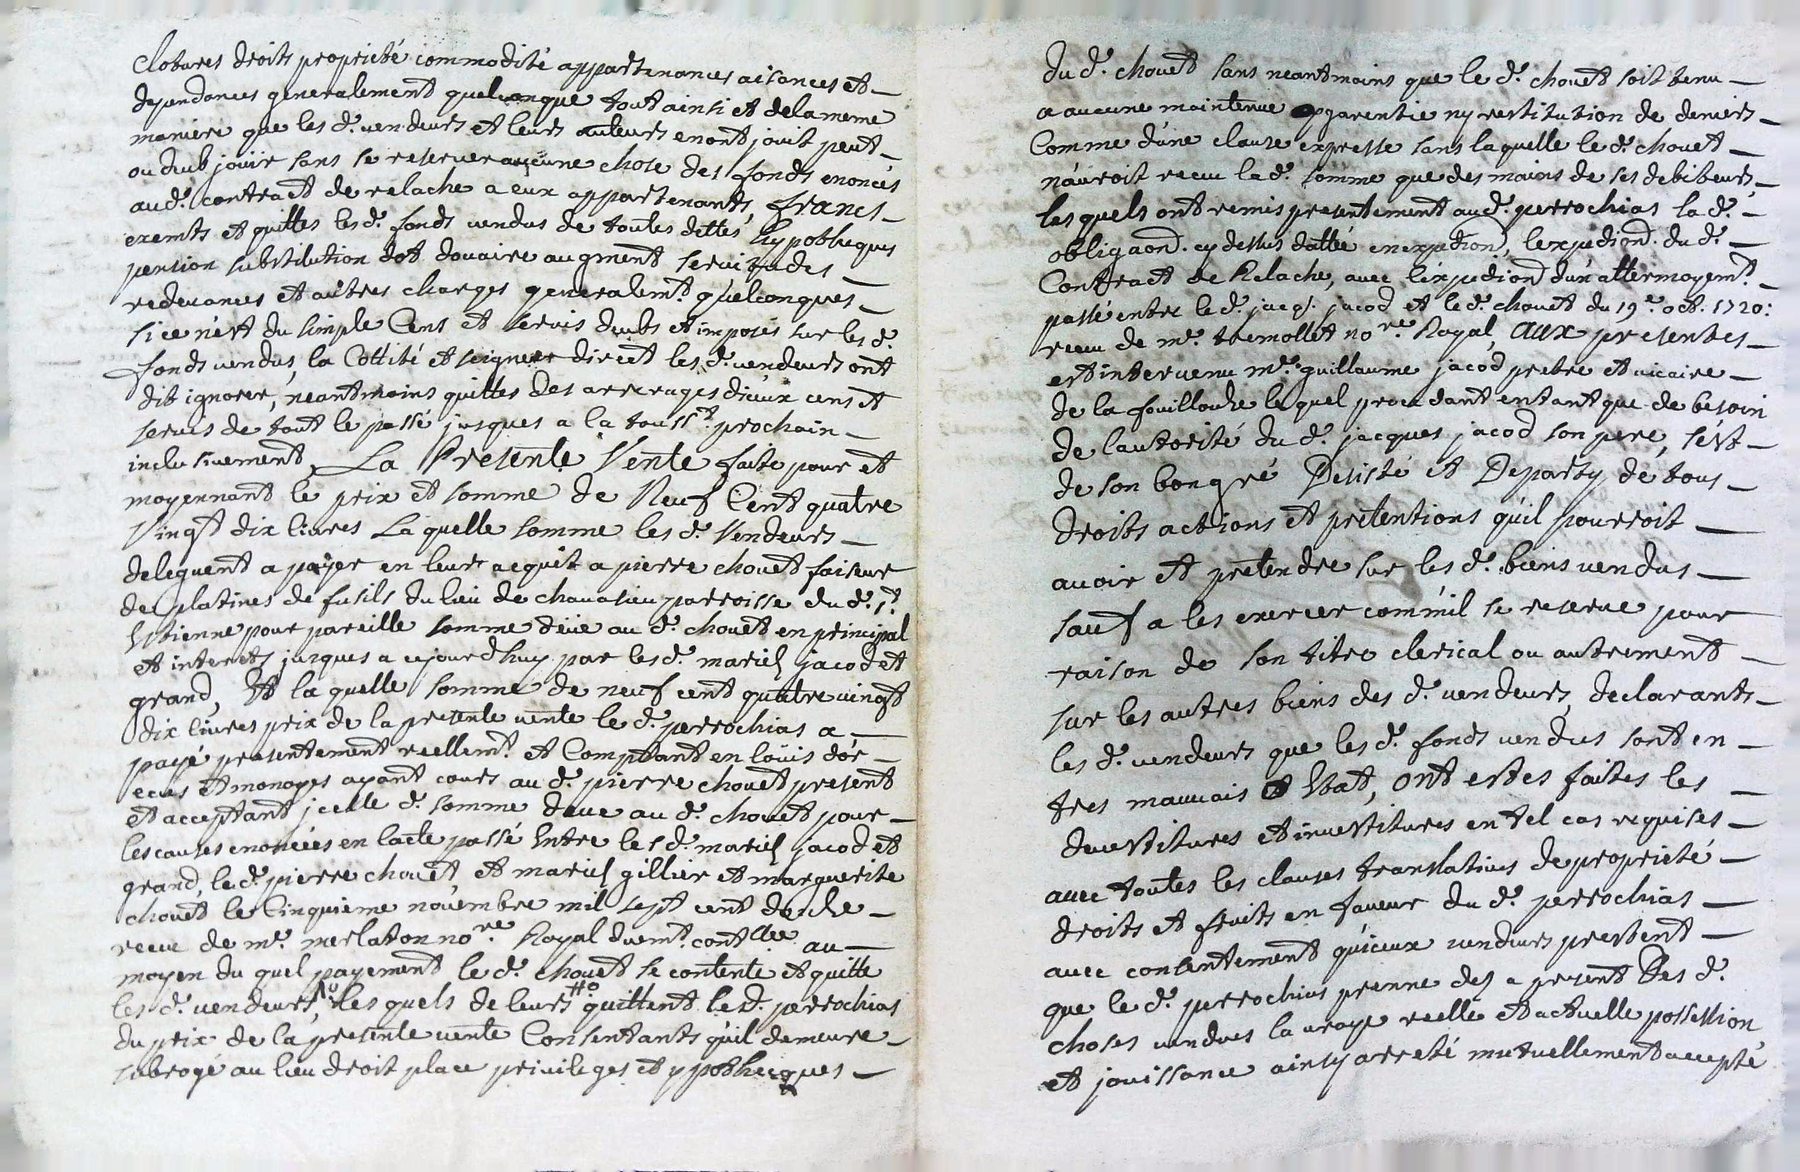 clotures droits proprieté commodité appartenances aisances et
dependances generalement quelconque tout ainsi et de la meme
maniere que les d. vendeurs et leurs auteurs en ont jouit peut
ou deub jouir sans se reserver aucune chose des fonds enoncés
aud. contract de relache a eux appartenants francs
exemts et quittes lesd. fonds vendus de toutes dettes hypotheques
pension substitution dot douaire augment servitudes
redevances et autres charges generalemt. quelconques
si ce n'est du simple Cens et servis deubs et imposés sur lesd.
fonds vendus, la Cottité et seigneur direct lesd. vendeurs ont
dit ignorer, neantmoins quittes des arrerages d'ieux cens et
servis de tout le passé jusques a la tousst. prochain
inclusivement, La Presente Vente faite pour et
moyennant le prix et somme de Neuf Cent quatre
Vingt dix livres La quelle somme les d. Vendeurs
deleguent a payer en leurs acquit a pierre chouet faiseur
de platines de fusils du lieu de chavassieu parroisse dud. st.
Etienne pour pareille somme deüe au d. chouet en principal
et interets jusques a cejourdhuy par lesd. mariés jacod et
grand, Et la quelle somme de neuf cent quatre vingt
dix livres prix de la presente vente led. perrochias a
payé presentement reellemt. et Comptant en loüis d'or
ecus et monoyes ayant cours aud. pierre chouet present
et acceptant jcelle d. somme deue aud. chouet pour
les causes enoncées en l'acte passé Entre lesd. mariés jacod et
grand, led. pierre chouet et mariés gillier et marguerite
chouet le Cinquieme novembre mil sept cent
receue de me. merlaton nore. Royal duemt. contllée au
moyen du quel payement led. chouet se contente et quitte
les d. vendeurs, les quels de leurs quittent led. perrochias
du prix de la presente vente Consentants qu'il demeure
subrogé au lieu droit place privileges et ypotheques
dud. chouet sans neantmoins que led. chouet soit tenu
a aucune maintenue garentie ny restitution de deniers
Comme d'une clause expresse sans laquelle led. chouet
n'auroit receu lad. somme que des mains de ses debiteurs
lesquels ont remis presentement aud. perrochias lad.
obligaond. cy dessus dattée en expediond, l'expediond. dud.
Contract de Relache, avec l'expediond d'un attermoyemt.
passé entre led. jacqs. jacod et led. chouet du 19e. oct. 1720:
receu de me. tremollet nore. Royal, aux presentes
est intervenu me. guillaume jacod pretre et vicaire
de la fouillouze lequel procedant entant que de besoin
de l'autorité du d. jacques jacod son pere, s'est
de son bongré Desisté et Departy de tous
droits actions et pretentions qu'il pourroit
avoir et pretendre sur les d. biens vendus
sauf a les exercer comm'il se reserve pour
raison de son titre clerical ou autrement
sur les autres biens des d. vendeurs, declarants
les d. vendeurs que les d. fonds vendus sont en
tres mauvais Etat, ont estes faites les
devestitures et investitures en tel cas requises
avec toutes les clauses translatives de proprieté
droits et fruits en faveur du d. perrochias
avec consentement qu'iceux vendeurs prestent
que le d. perrochias prenne des a present Des d.
choses vendues la vraye reelle et actuelle possession
et jouissance ainsy arreté mutuellement accepté